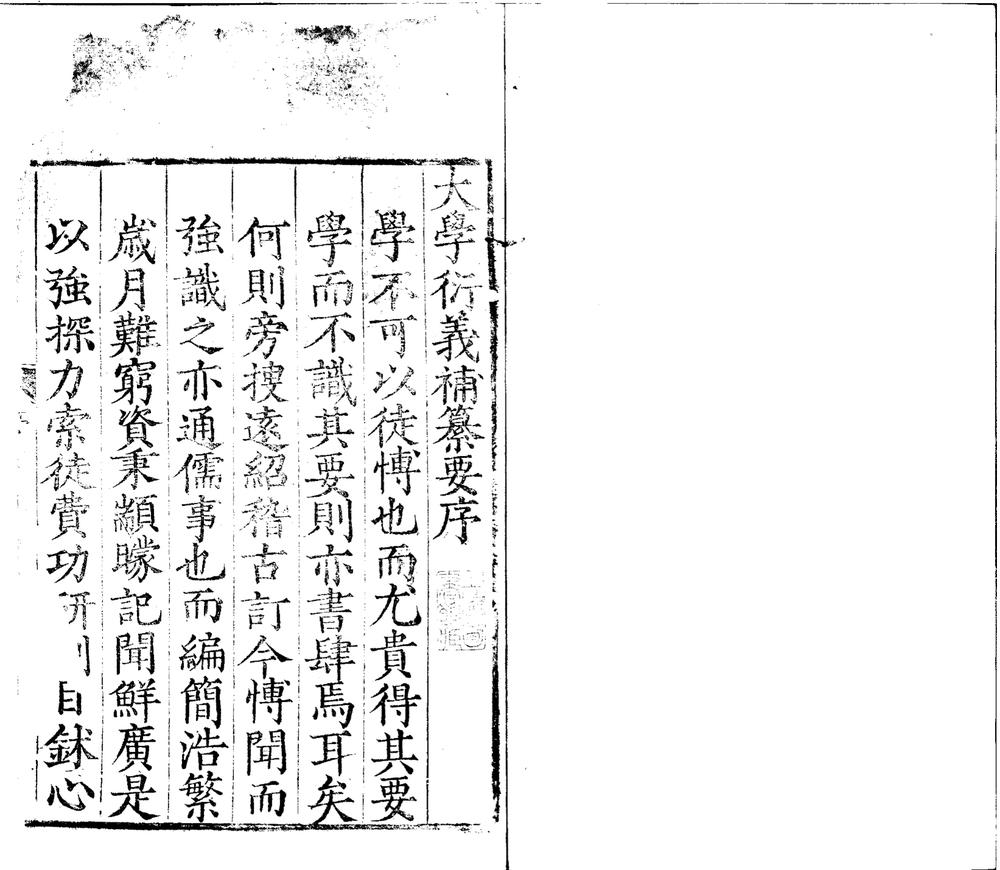 大學衍義補纂要序
學不可以徒愽也而尤貴得其要
學而不識其要則亦書肆焉耳矣
何則旁搜逺紹稽古訂今愽聞而
強識之亦通儒事也而編簡浩繁
歳月難窮資秉顓矇記聞鮮廣是
以強探力索徒費功研 目鉥心